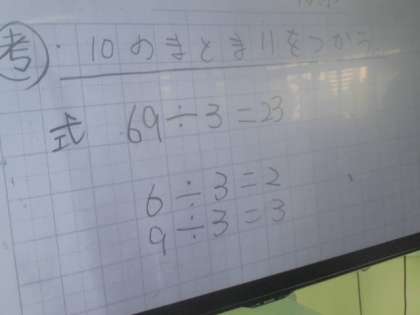 考・10のまとまりをつかう。
式 69÷3=23
6÷3=2
9÷3=3